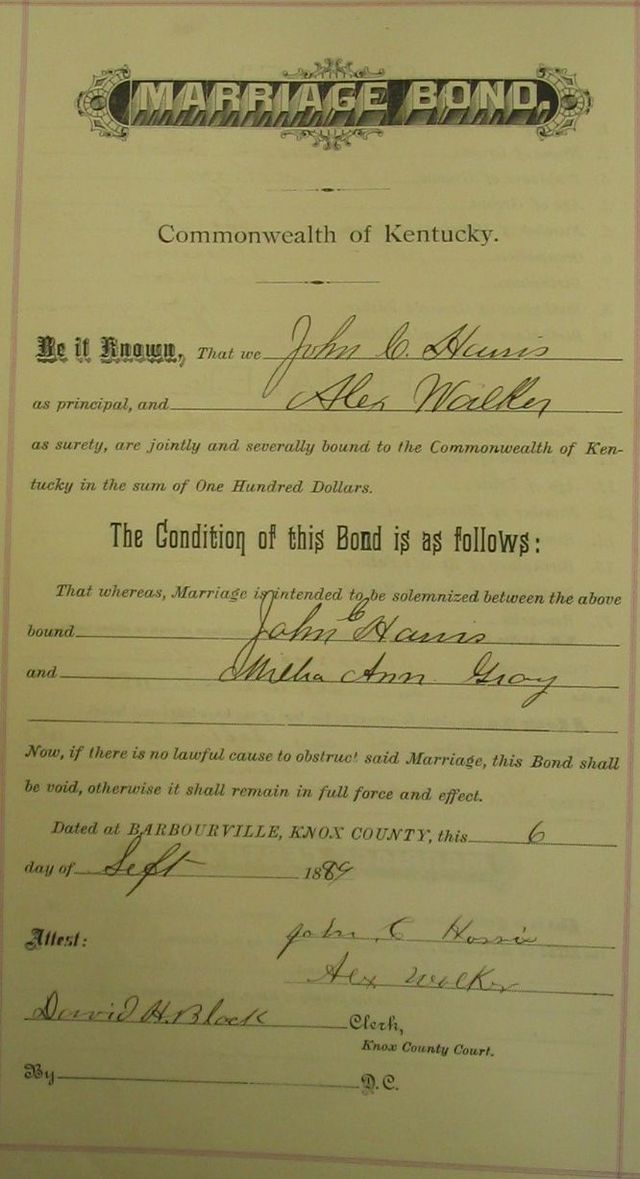 MARRIAGE BOND.
Commonwealth of Kentucky.
Be it Known, That we John C. Harris
as principal, and Alex Walker
as surety, are jointly and severally bound to the Commonwealth of Ken-
tucky in the sum of One Hundred Dollars.
The Condition of this Bond is as follows:
That whereas, Marriage is intended to be solemnized between the above
bound John C Harris
and Ann Gray
Now, if there is no lawful cause to obstruct said Marriage, this Bond shall
be void, otherwise it shall remain in full force and effect.
Dated at BARBOURVILLE, KNOX COUNTY, this 6
day of Sept 1889
Attest: John C Harris
Alex Walker
David H. Black Clerk,
Knox County Court.
By D.C.